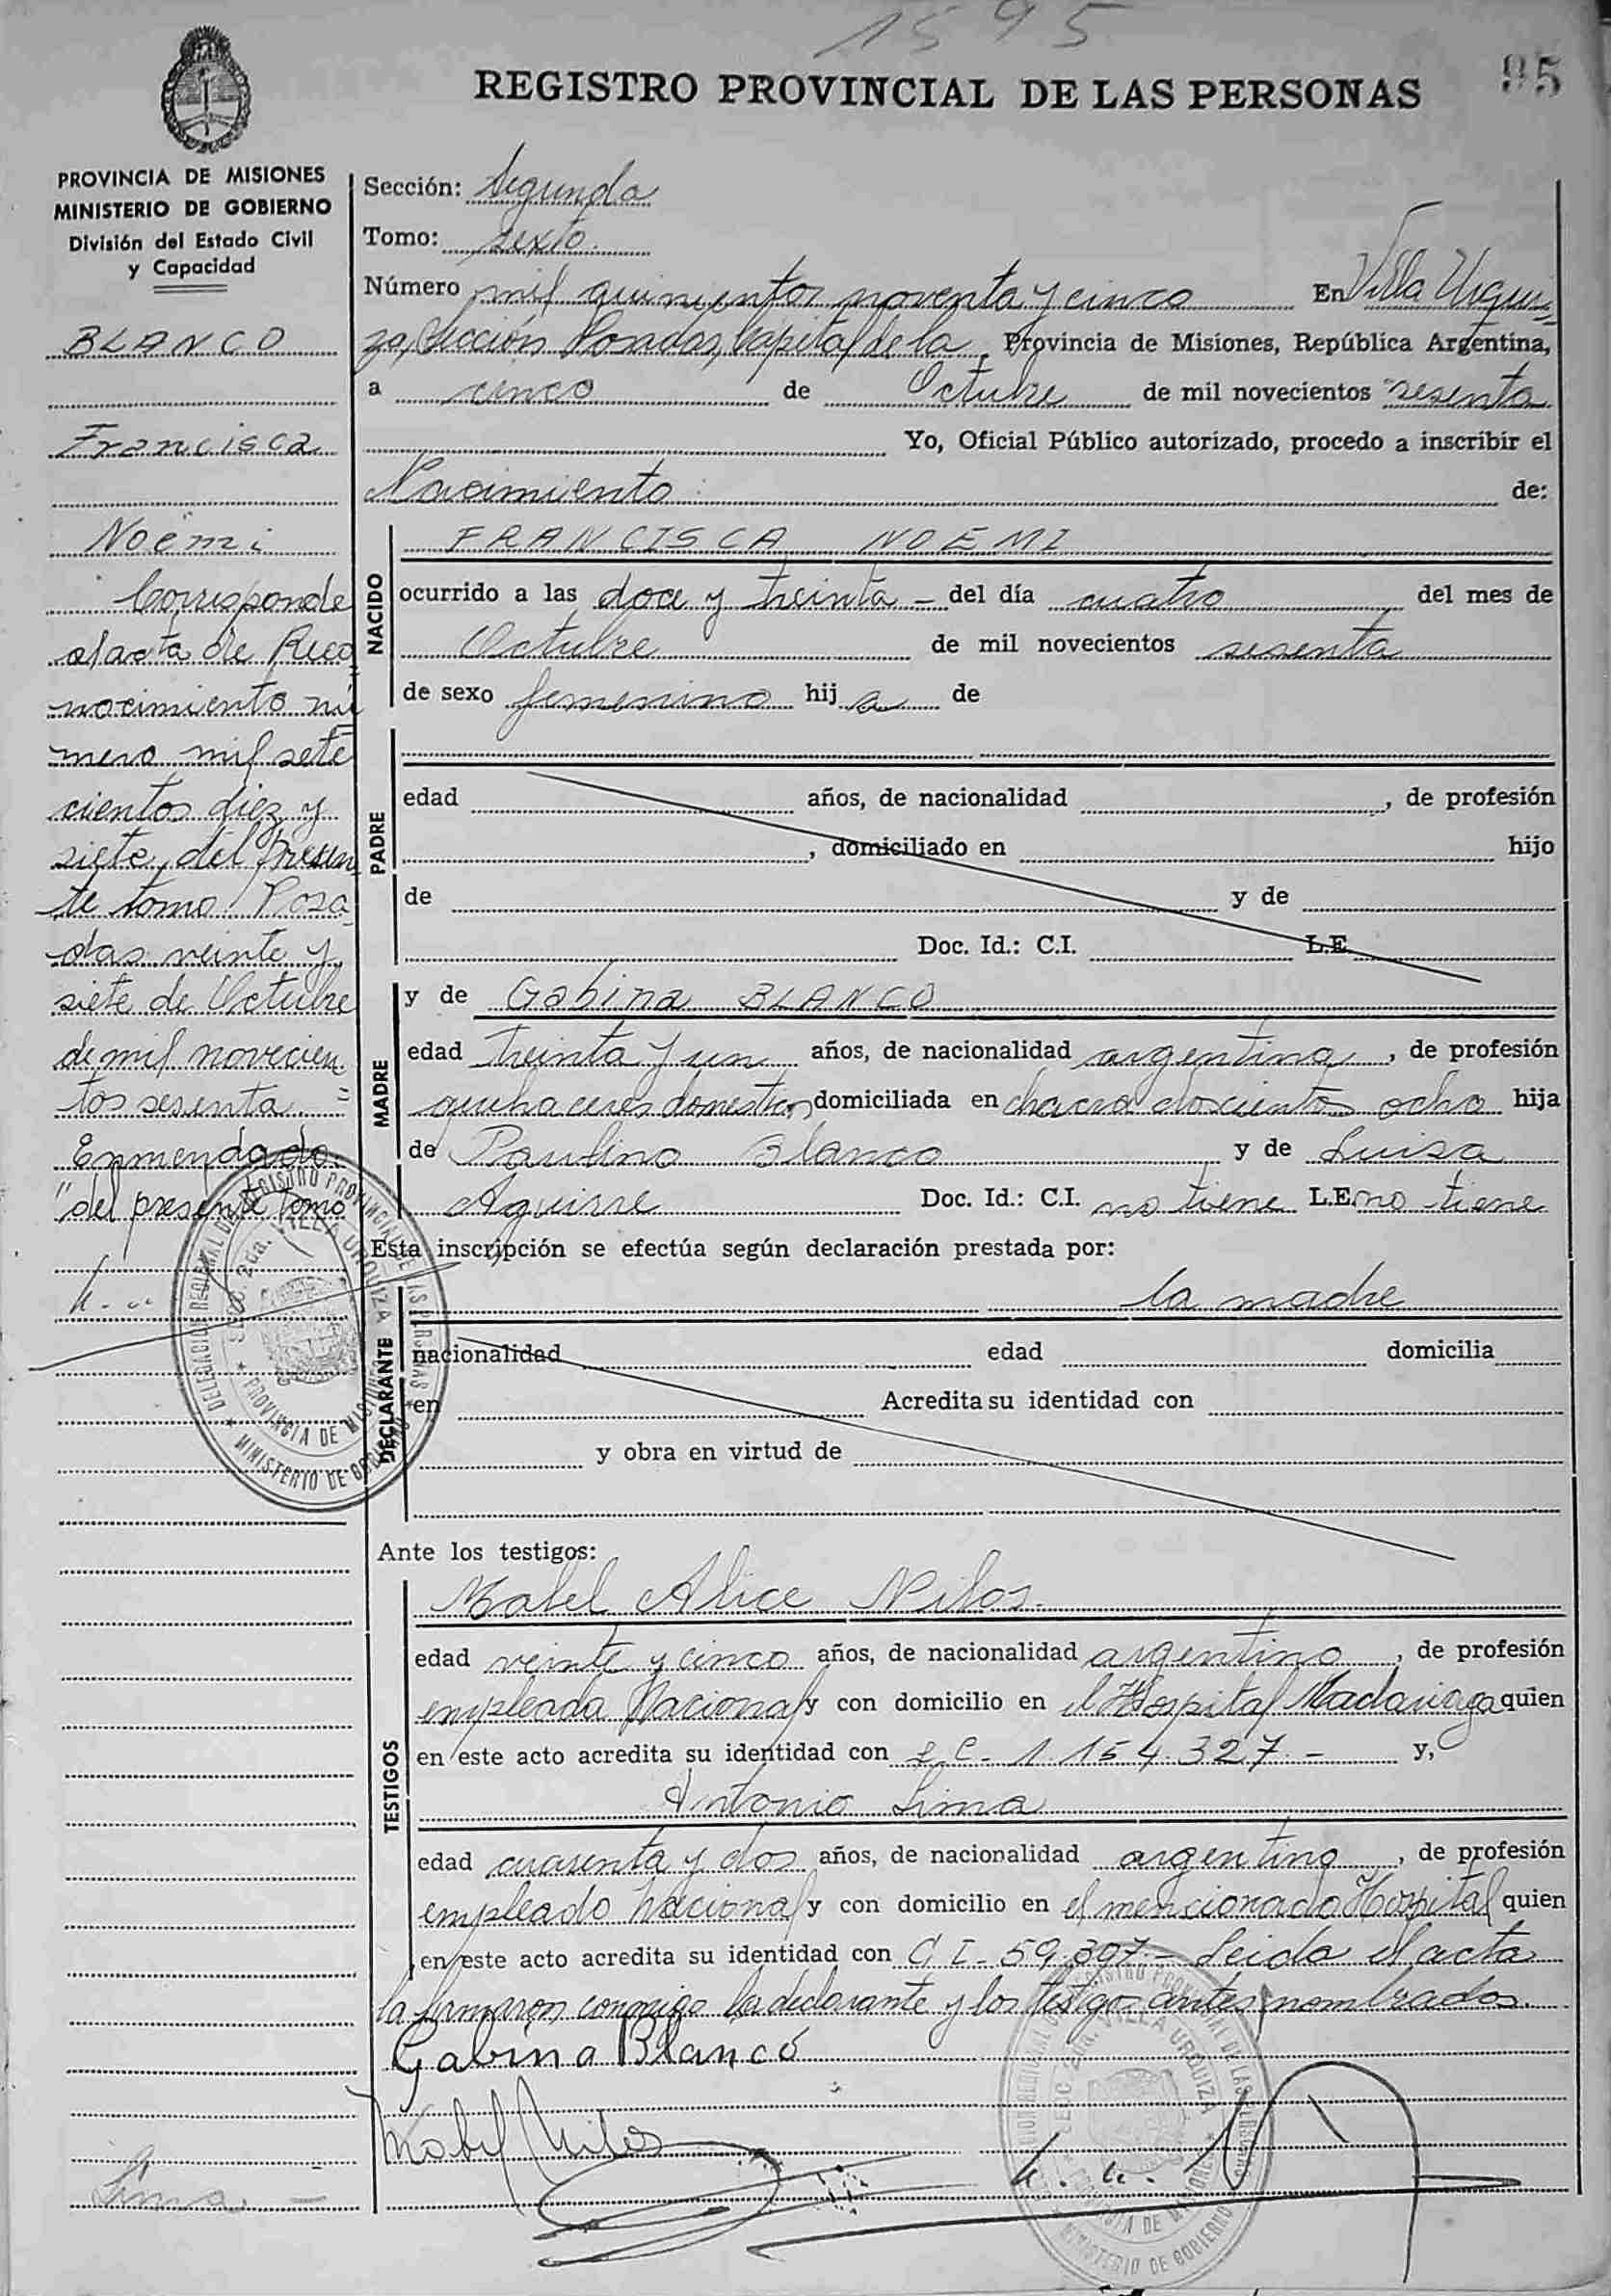 1595
95
REGISTRO PROVINCIAL DE LAS PERSONAS
PROVINCIA DE MISIONES
MINISTERIO DE GOBIERNO
División del Estado Civil
y Capacidad
BLANCO
Francisca
Noemi
Corresponde
al acta de Reco
nocimiento nú
mero mil sete
cientos diez y
siete, del presen
te tomo. Posa
das veinte y
siete de Octubre
de mil novecien
tos sesenta. =
Enmendado
"del presente tomo
Sección: Segunda
Tomo: sexto
Número mil quinientos noventa y cinco En Villa Urqui
za, Sección Posadas, Capital de la Provincia de Misiones, República Argentina,
a cinco de Octubre de mil novecientos sesenta
Yo, Oficial Público autorizado, procedo a inscribir el
Nacimiento de:
NACIDO
FRANCISCA NOEMI
ocurrido a las doce y treinta - del día cuatro del mes de
Octubre de mil novecientos sesenta
de sexo femenino hij a de
PADRE
edad años, de nacionalidad , de profesión
, domiciliado en hijo
de y de
Doc. Id.: C.I. L.E.
MADRE
y de Gabina BLANCO
edad treinta y un años, de nacionalidad argentina, de profesión
quehaceres domésticos domiciliada en chacra doscientos ocho hija
de Paulino Blanco y de Luisa
Aguirre Doc. Id.: C.I. no tiene L.E. no tiene
Esta inscripción se efectúa según declaración prestada por:
DECLARANTE
la madre
nacionalidad edad domicilia
en Acredita su identidad con
y obra en virtud de
Ante los testigos:
TESTIGOS
Mabel Alice Nilos.
edad veinte y cinco años, de nacionalidad argentino, de profesión
empleada Nacional y con domicilio en el Hospital Madariaga quien
en este acto acredita su identidad con L C - 1.154.327. - y,
Antonio Lima
edad cuarenta y dos años, de nacionalidad argentino, de profesión
empleado Nacional y con domicilio en el mencionado Hospital quien
en este acto acredita su identidad con C I - 59.397 - Leida el acta
la firmaron conmigo la declarante y los testigos antes nombrados.
Gabina Blanco
Mabel Nilos
Lima -
DELEGACION REGIONAL DEL REGISTRO PROVINCIAL DE LAS PERSONAS
SECC. 2da. VILLA URQUIZA
PROVINCIA DE MISIONES
MINISTERIO DE GOBIERNO
DELEGACION REGIONAL DEL REGISTRO PROVINCIAL DE LAS PERSONAS
SECC. 2da. VILLA URQUIZA
PROVINCIA DE MISIONES
MINISTERIO DE GOBIERNO